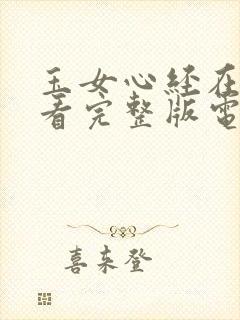 玉女心经在
看完整版電
喜来登